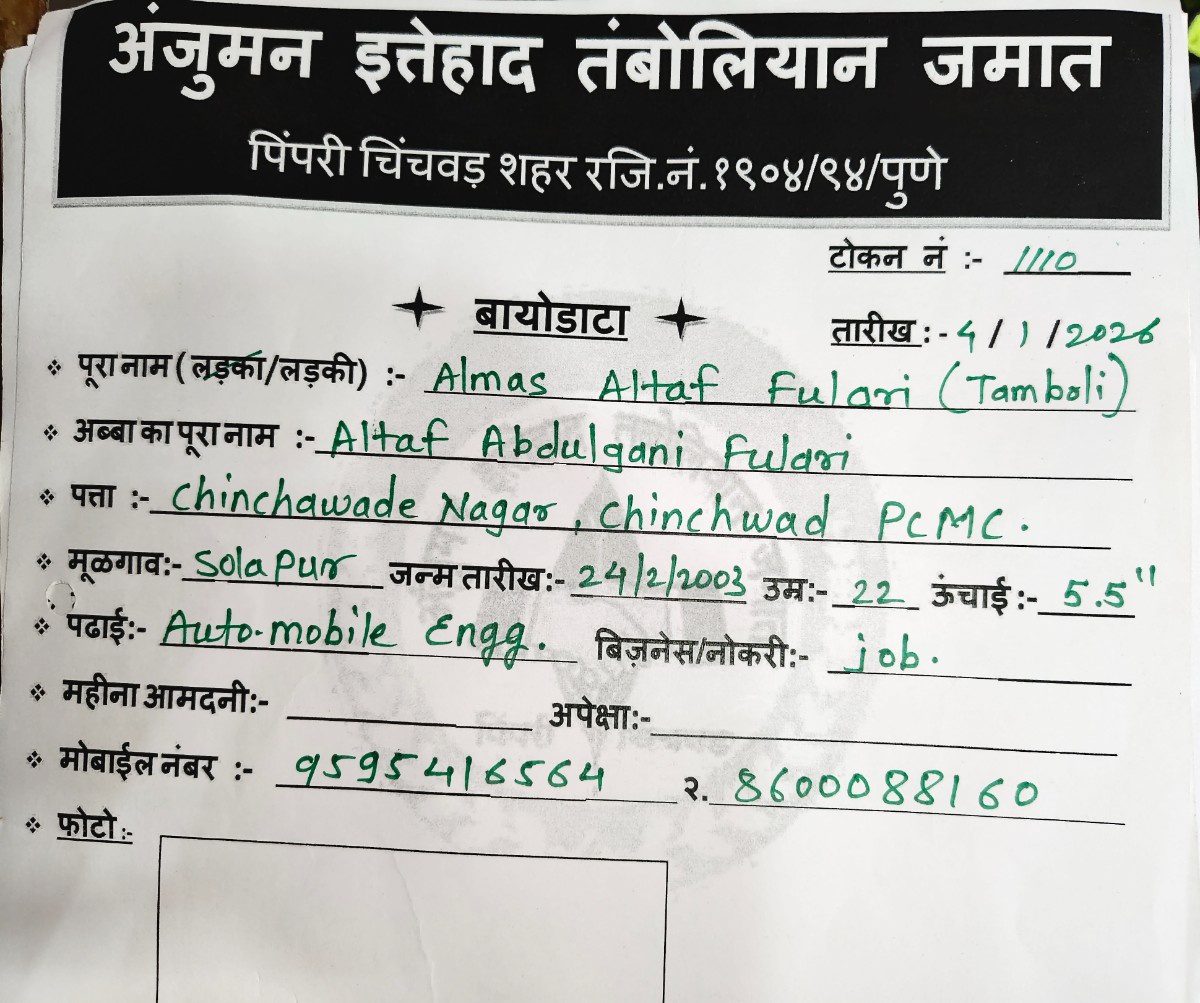 अंजुमन इत्तेहाद तंबोलियान जमात
पिंपरी चिंचवड़ शहर रजि.नं.१९०४/९४/पुणे
टोकन नं :- 1110
बायोडाटा
तारीख :- 4/1/2026
पूरा नाम (लड़का/लड़की) :- Almas Altaf Fulari (Tamboli)
अब्बा का पूरा नाम :- Altaf Abdulgani Fulari
पत्ता :- Chinchawade Nagar, Chinchwad PCMC.
मूळगाव:- Solapur जन्म तारीख:- 24/2/2003 उम्र:- 22 ऊंचाई :- 5.5"
पढाई:- Auto.mobile Engg. बिज़नेस/नोकरी:- job.
महीना आमदनी:- अपेक्षा:-
मोबाईल नंबर :- 9595416564 २. 8600088160
फोटो :-